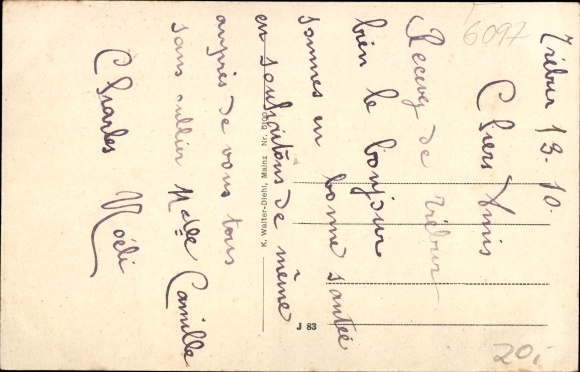 Tribur 13. 10.
Chers Amis
Recevez de Tribur
bien le bonjour
sommes en bonne santée
en souhaitons de même
auprès de vous tous
sans oublier Mdle Camille
Charles Noéli
6097
K. Walter-Diehl, Mainz Nr. 6100
J 83
20,-